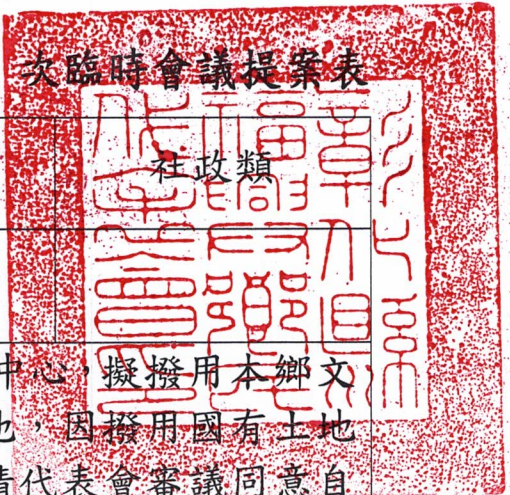 次臨時會議提案表
社政類
中心，擬撥用本鄉文
地，因撥用國有土地
請代表會審議同意自
彰化縣
福興鄉民
代表會印